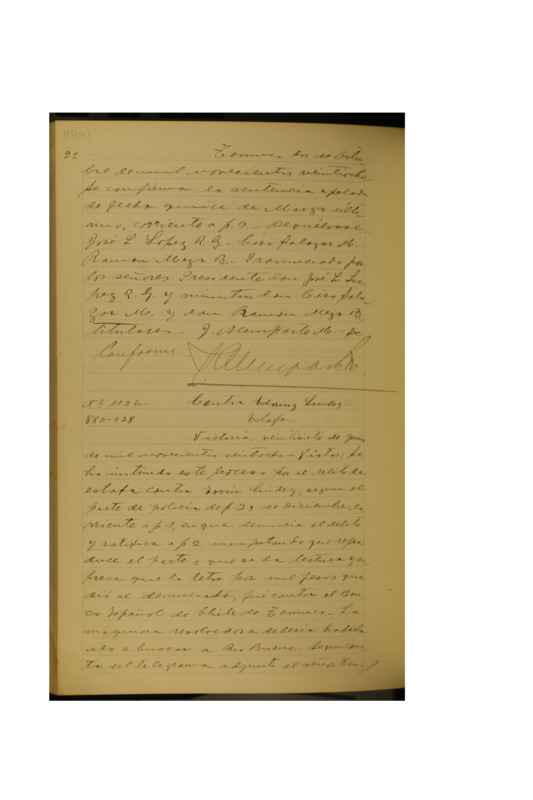 92
Temuco dos de Octu-
bre de mil novecientos veintiocho.-
Se confirma la sentencia apelada
de fecha quince de Marzo últi-
mo, corriente a f. 9.- Devuélvase.-
José L. Lopez R. G.- Ciro Salazar M.-
Ramon Meza B.- Pronunciado por
los señores Presidente don José L. Lo-
pez R. G. y ministros don Ciro Sala-
zar M. y don Ramon Meza B.
titulares.- J. Alemparte M.-
Conforme
Nº 1136 Contra
880-928 Estafa.
Victoria, veintisiete de
de mil novecientos veintiocho.- Vistos; Se
ha instruido este proceso por el delito de
estafa contra segun el
parte de policía de f. 29 de diciembre, co-
rriente a f. 1, en que denuncia el delito
y ratifica a f. 2, manifestando que repro-
duce el parte, que se da lectura y ex-
presa que la letra por mil pesos que
dió al denunciado, fué contra el Ban-
co Español de Chile de Temuco. La
máquina debería haberla
ido a buscar a Rio Bueno. Segun cons-
ta del telegrama adjunto el señor